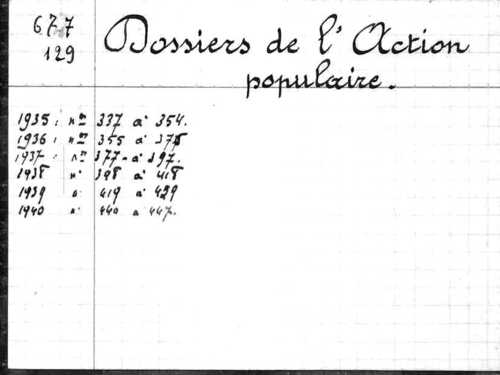 677
129
Dossiers de l'Action
populaire.
1935 : nos 337 à 354.
1936 : nos 355 à 375
1937 : nos 377 - à 397.
1938 n° 398 à 418
1939 à 419 à 439
1940 n° 440 à 447.